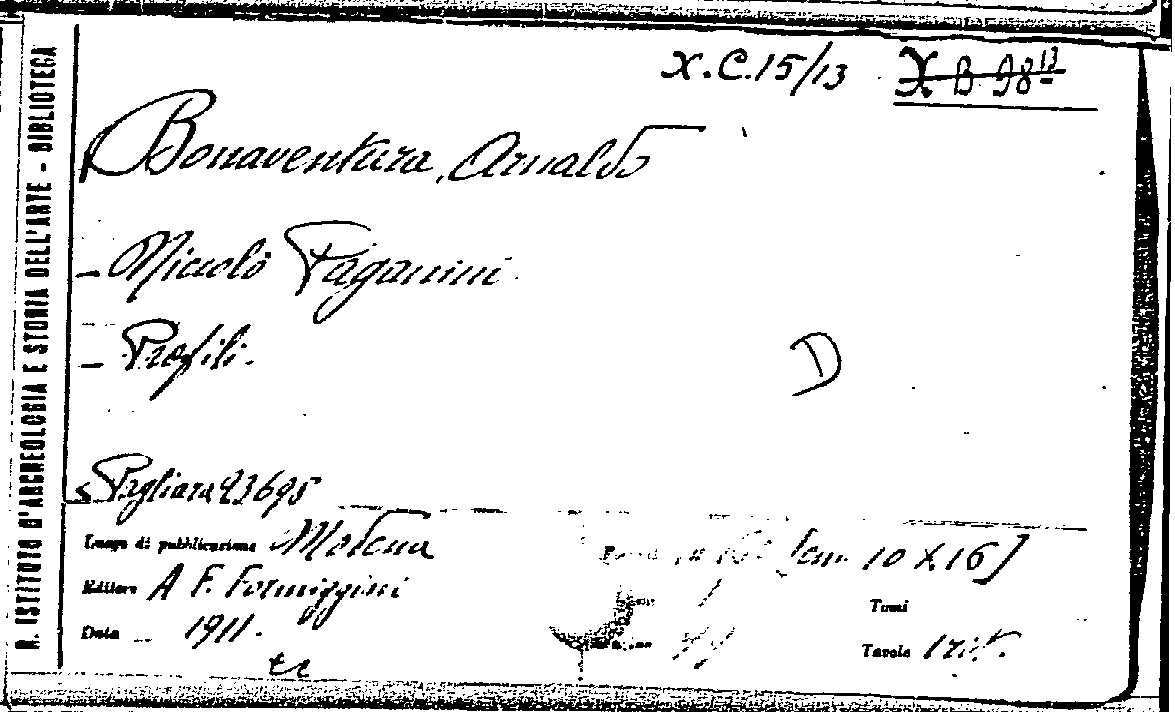 R. ISTITUTO D'ARCHEOLOGIA E STORIA DELL'ARTE - BIBLIOTECA
X.C.15/13 X B 98 13
Bonaventura, Arnaldo
- Niccolò Paganini.
- Profili.
D
Pagliara 23695
Luogo di pubblicazione Modena
[cm. 10 X 16]
Editore A F. Formiggini
Tomi
Data 1911.
Tavole 1 rit.